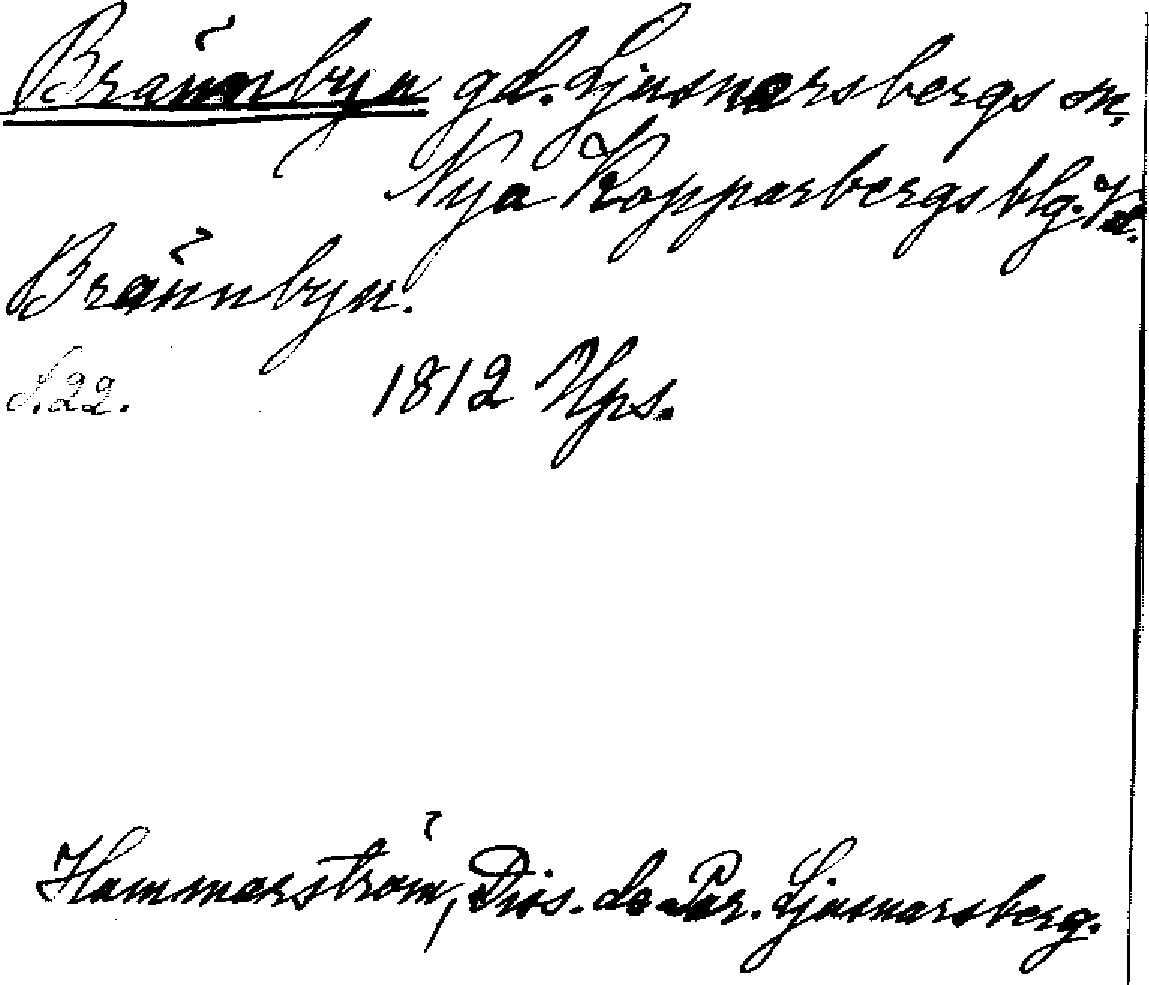 Brännbyn gd. Ljusnarsbergs sn.
Nya Kopparbergs blg. Vd.
Brännbyn.
S. 22. 1812 Ups.
Hammarström, Diss. de Par. Ljusnarsberg.